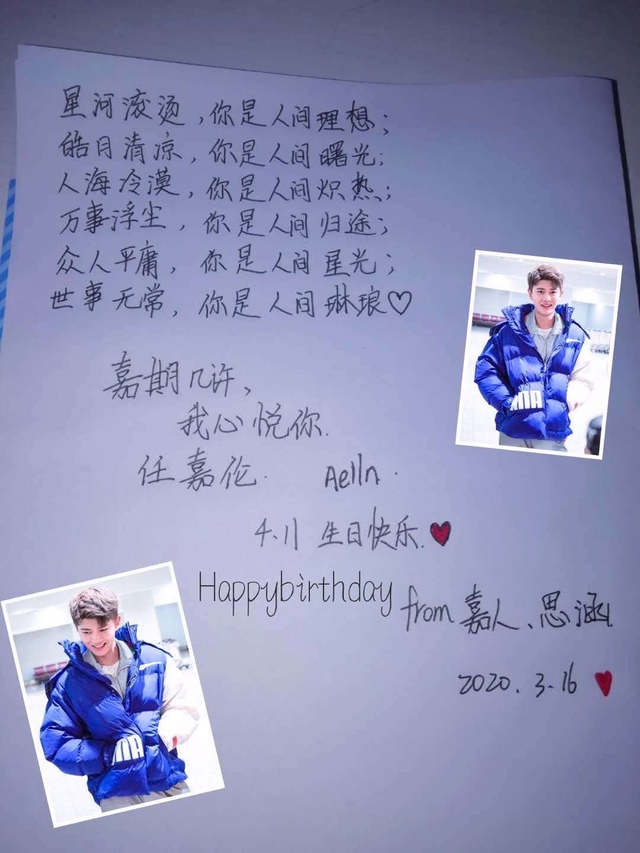 星河滚烫，你是人间理想；
皓月清凉，你是人间曙光；
人海冷漠，你是人间炽热；
万事浮尘，你是人间归途；
众人平庸，你是人间星光；
世事无常，你是人间琳琅♡
嘉期几许，
我心悦你.
任嘉伦. Aelln.
4.11 生日快乐.
Happybirthday
from 嘉人、思涵.
2020.3.16